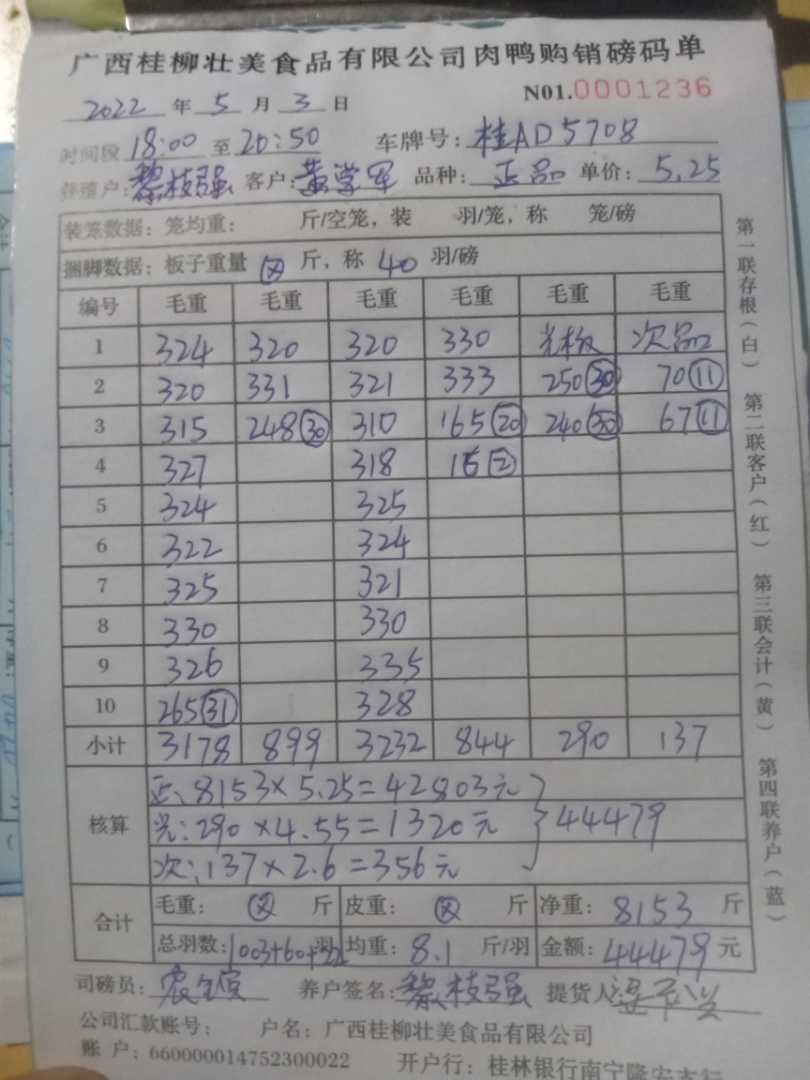 广西桂柳壮美食品有限公司肉鸭购销磅码单
2022 年 5 月 3 日 N01.0001236
时间段 18:00 至 20:50 车牌号: 桂AD5708
养殖户: 黎枝强 客户: 黄学军 品种: 正品 单价: 5.25
装笼数据: 笼均重: 斤/空笼, 装 羽/笼, 称 笼/磅
捆脚数据: 板子重量 斤, 称 40 羽/磅
编号 毛重 毛重 毛重 毛重 毛重 毛重
1 324 320 320 330 光板 次品
2 320 331 321 333 250(30) 70(11)
3 315 248(30) 310 165(20) 240(30) 67(11)
4 327 318 15(2)
5 324 325
6 322 324
7 325 321
8 330 330
9 326 335
10 265(31) 328
小计 3178 899 3232 844 290 137
正: 8153×5.25=42803元
核算 光:290×4.55=1320元 } 44479
次:137×2.6=356元
合计 毛重: 斤 皮重: 斤 净重: 8153 斤
总羽数: 1003+60+22 羽 均重: 8.1 斤/羽 金额: 44479 元
司磅员: 养户签名: 黎枝强 提货人
公司汇款账号: 户名: 广西桂柳壮美食品有限公司
账 户: 660000014752300022 开户行: 桂林银行南宁隆安支行
第一联存根(白) 第二联客户(红) 第三联会计(黄) 第四联养户(蓝)